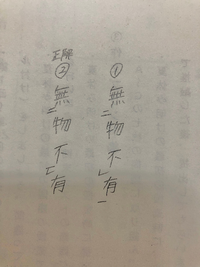 ①無二物不レ有一
正解
②無二物不一レ有